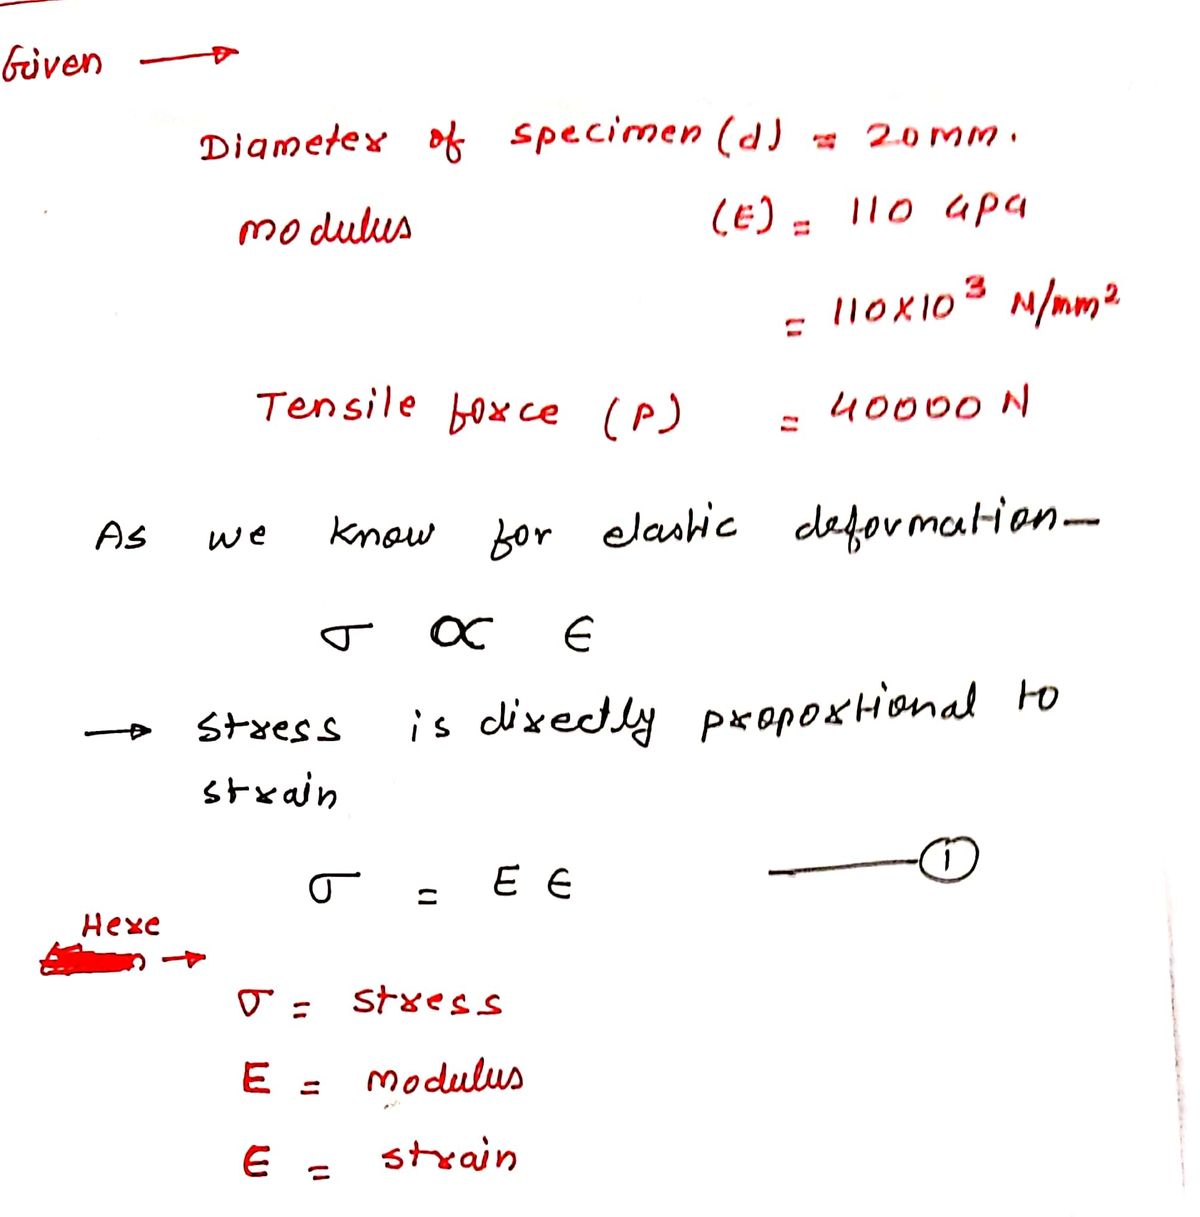 Given →
Diameter of specimen (d) = 20 mm.
modulus (E) = 110 GPa
= 110×10³ N/mm²
Tensile force (P) = 40000 N
As we know for elastic deformation—
σ ∝ ϵ
→ stress is directly proportional to
strain
σ = E ϵ —— ①
Here
→
σ = stress
E = modulus
ϵ = strain